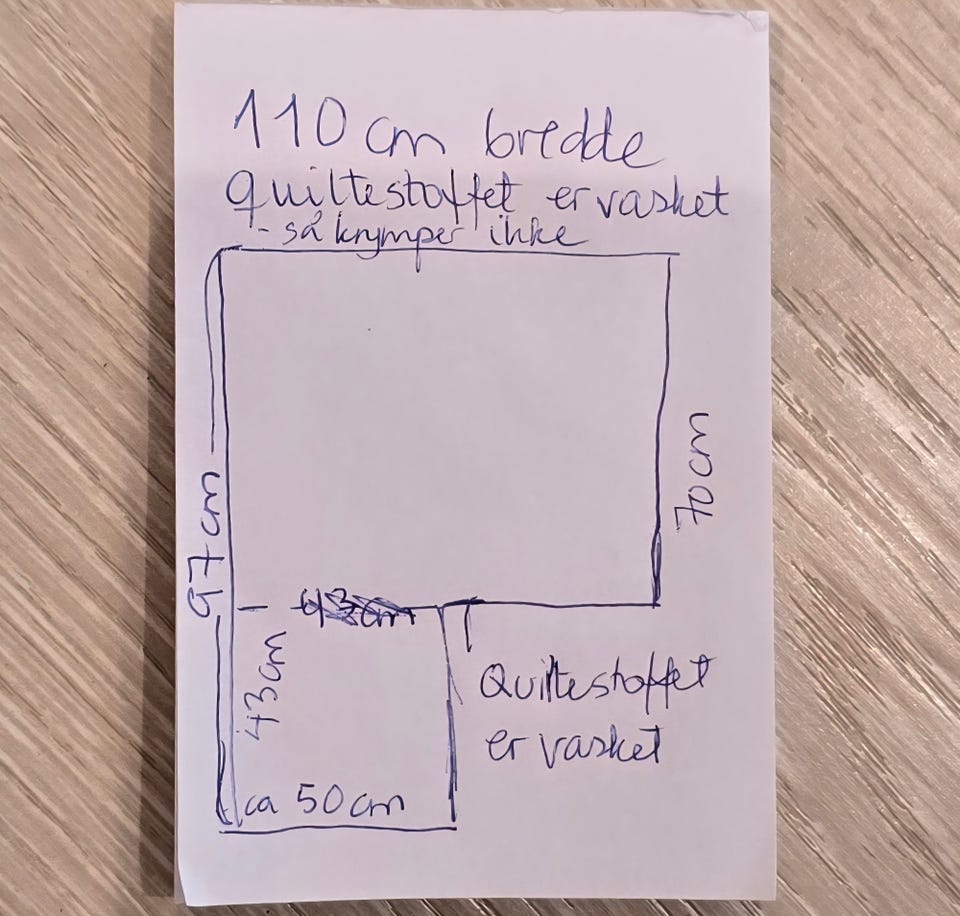 110 cm bredde
quiltestoffet er vasket
- så krymper ikke
97 cm
70 cm
43 cm
43 cm
Quiltestoffet
er vasket
ca 50 cm